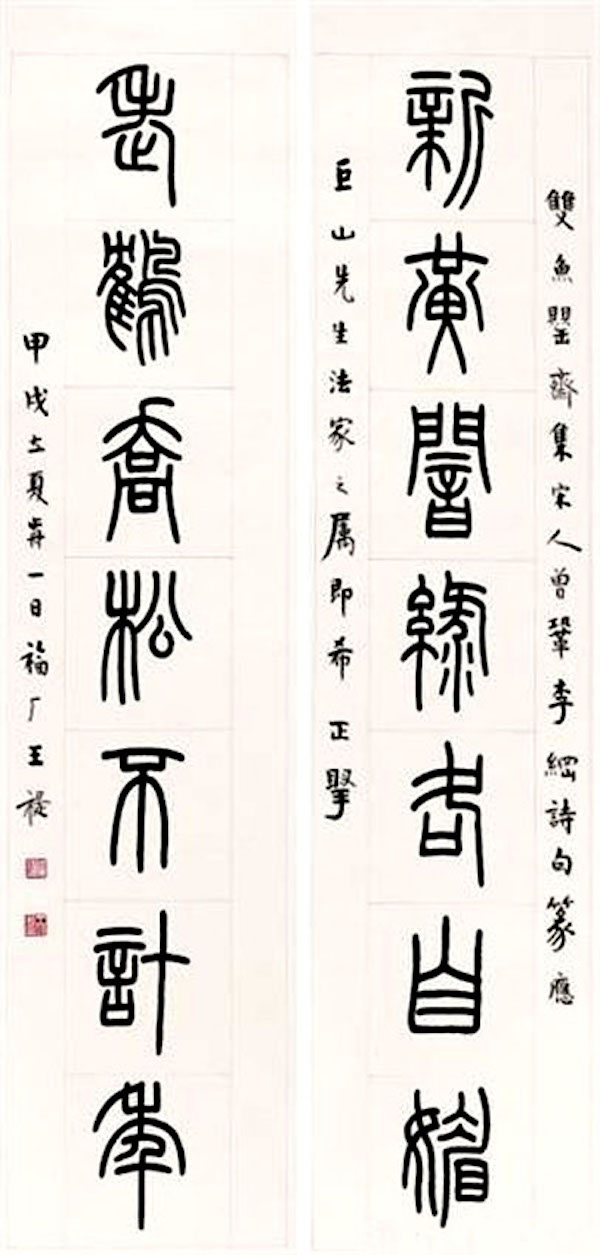 雙魚罌齋集宋人曾鞏李綱詩句篆應
新黃闇綠各自媚
巨山先生法家之屬即希 正掔
老鶴喬松不計年
甲戌立夏歬一日福厂王禔